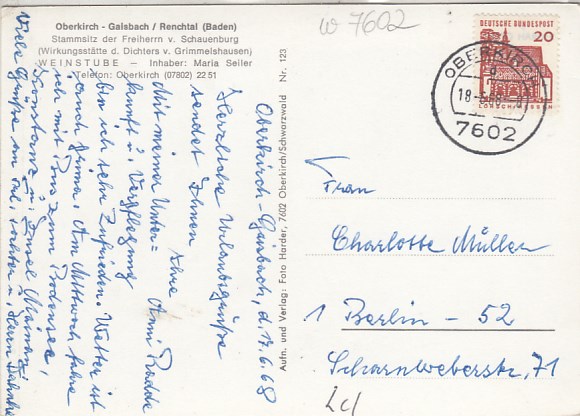 Oberkirch - Gaisbach / Renchtal (Baden)
Stammsitz der Freiherrn v. Schauenburg
(Wirkungsstätte d. Dichters v. Grimmelshausen)
WEINSTUBE — Inhaber: Maria Seiler
Telefon: Oberkirch (07802) 22 51
w 7602
DEUTSCHE BUNDESPOST
20
LORSCH/HESSEN
OBERKIRCH
18.-6.68
7602
Oberkirch-Gaisbach, d. 17.6.68
Herzliche Urlaubsgrüße
sendet Ihnen
Ihre Anni Radde
Mit meiner Unter=
kunft u. Verpflegung
bin ich sehr zufrieden. Wetter ist
auch prima. Am Mittwoch fahre
ich mit Bus zum Bodensee,
Konstanz u. Insel Mainau.
Viele Grüße an Frl. Tochter u. Herrn
Aufn. und Verlag: Foto Harder, 7602 Oberkirch/Schwarzwald Nr. 123
Frau
Charlotte Müller
1 Berlin - 52
Scharnweberstr. 71